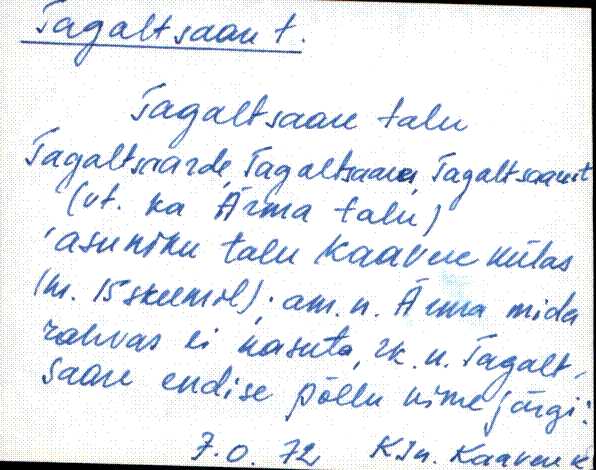 Tagaltsaare t.
Tagaltsaare talu
Tagaltsaarde, Tagaltsaares, Tagaltsaarest
(vt. ka Ärma talu)
'asuniku talu Kaavere külas
(nr. 15 skeemil); am. n. Ärma mida
rahvas ei kasuta, rk. n. Tagalt-
saare endise põllu nime järgi.
7.0. 72 KJn. Kaavere k